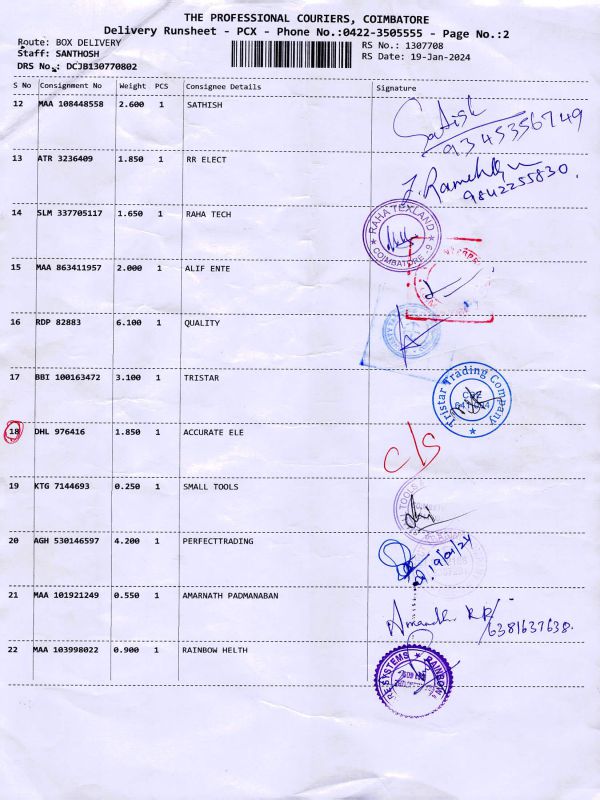 THE PROFESSIONAL COURIERS, COIMBATORE
Delivery Runsheet - PCX - Phone No.:0422-3505555 - Page No.:2
Route: BOX DELIVERY RS No.: 1307708
Staff: SANTHOSH RS Date: 19-Jan-2024
DRS No.: DCJB130770802
S No Consignment No Weight PCS Consignee Details Signature
12 MAA 108448558 2.600 1 SATHISH Satish
9345356749
13 ATR 3236409 1.850 1 RR ELECT
9842255830.
14 SLM 337705117 1.650 1 RAHA TECH RAHA TEXLAND COIMBATORE - 9
15 MAA 863411957 2.000 1 ALIF ENTE
16 RDP 82883 6.100 1 QUALITY
17 BBI 100163472 3.100 1 TRISTAR Tristar Trading Company
18 DHL 976416 1.850 1 ACCURATE ELE C/S
19 KTG 7144693 0.250 1 SMALL TOOLS TOOLS
20 AGH 530146597 4.200 1 PERFECTTRADING 19/01/24
21 MAA 101921249 0.550 1 AMARNATH PADMANABAN
6381637638.
22 MAA 103998022 0.900 1 RAINBOW HELTH SYSTEMS RAINBOW